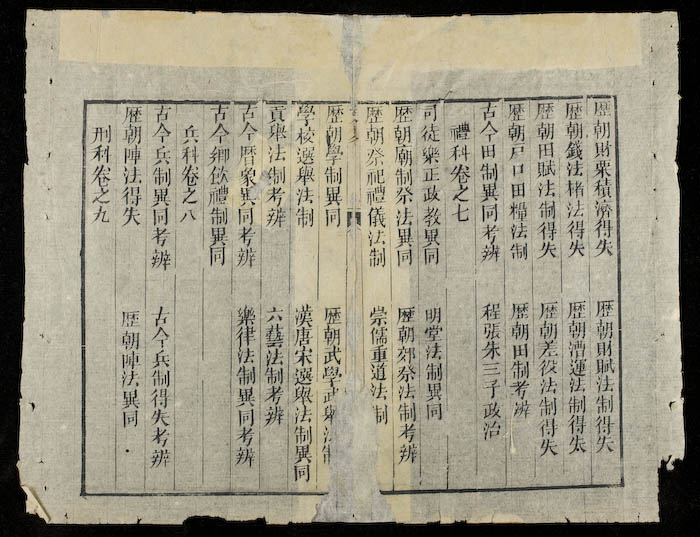 歴朝財粟積濟得失　歴朝財賦法制得失
歴朝錢法楮法得失　歴朝漕運法制得失
歴朝田賦法制得失　歴朝差役法制得失
歴朝戶口田糧法制　歴朝田制考辨
古今田制異同考辨　程張朱三子政治
禮科卷之七
司徒樂正政教異同　明堂法制異同
歴朝廟制祭法異同　歴朝郊祭法制考辨
歴朝祭祀禮儀法制　崇儒重道法制
歴朝學制異同　歴朝武學武舉法制
學校選舉法制　漢唐宋選舉法制異同
貢舉法制考辨　六藝法制考辨
古今曆象異同考辨　樂律法制異同考辨
古今鄉飲禮制異同
兵科卷之八
古今兵制異同考辨　古今兵制得失考辨
歴朝陣法得失　歴朝陣法異同
刑科卷之九